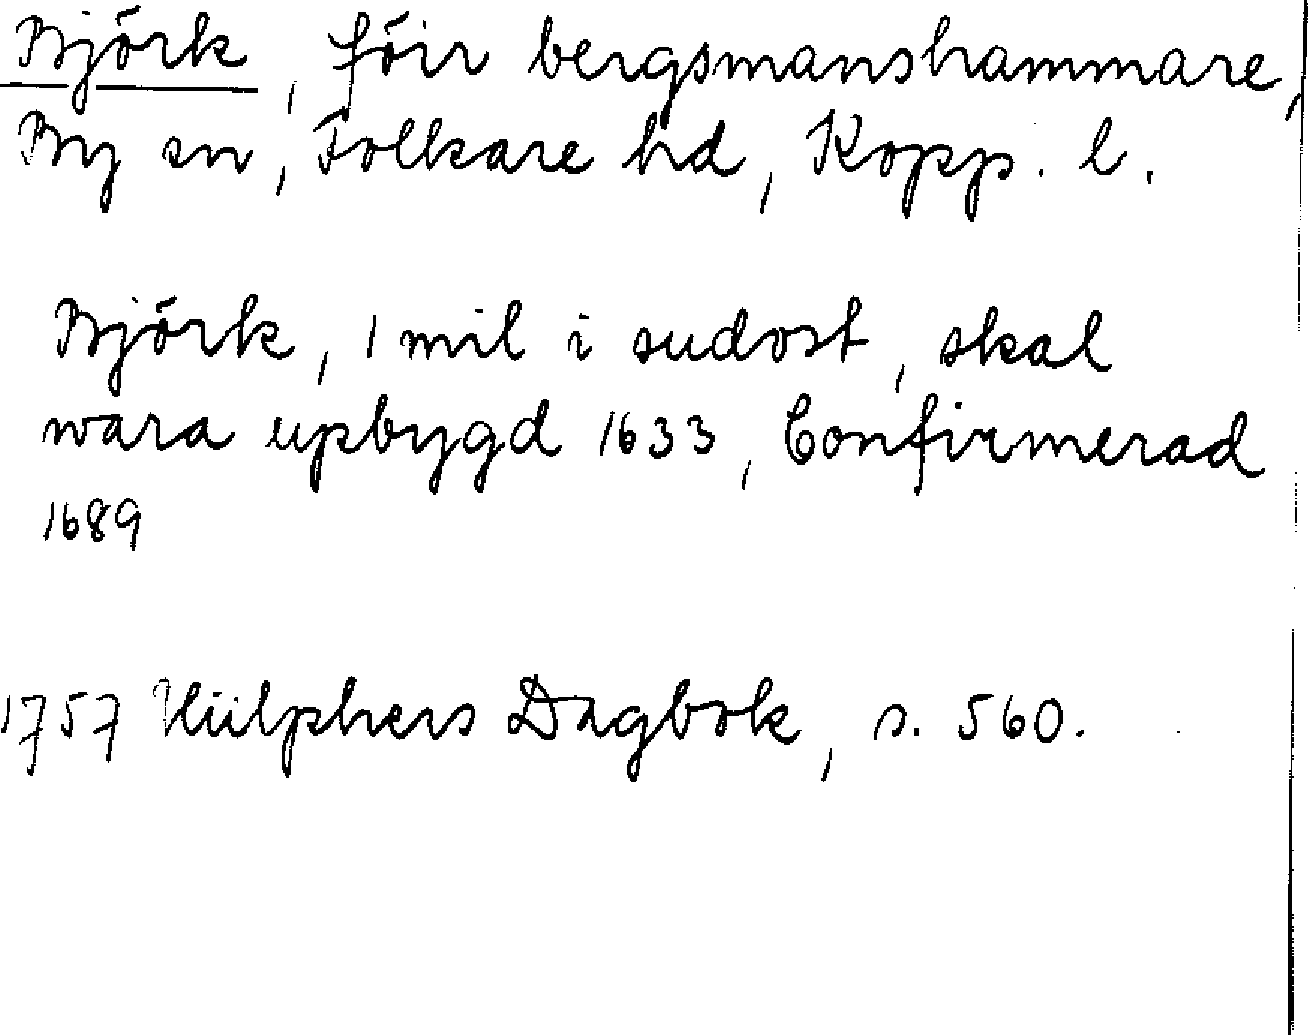 Björk, för bergsmanshammare,
By sn, Folkare hd, Kopp. l.
Björk, 1 mil i sudost, skal
wara upbygd 1633, Confirmerad
1689
1757 Hülphers Dagbok, s. 560.